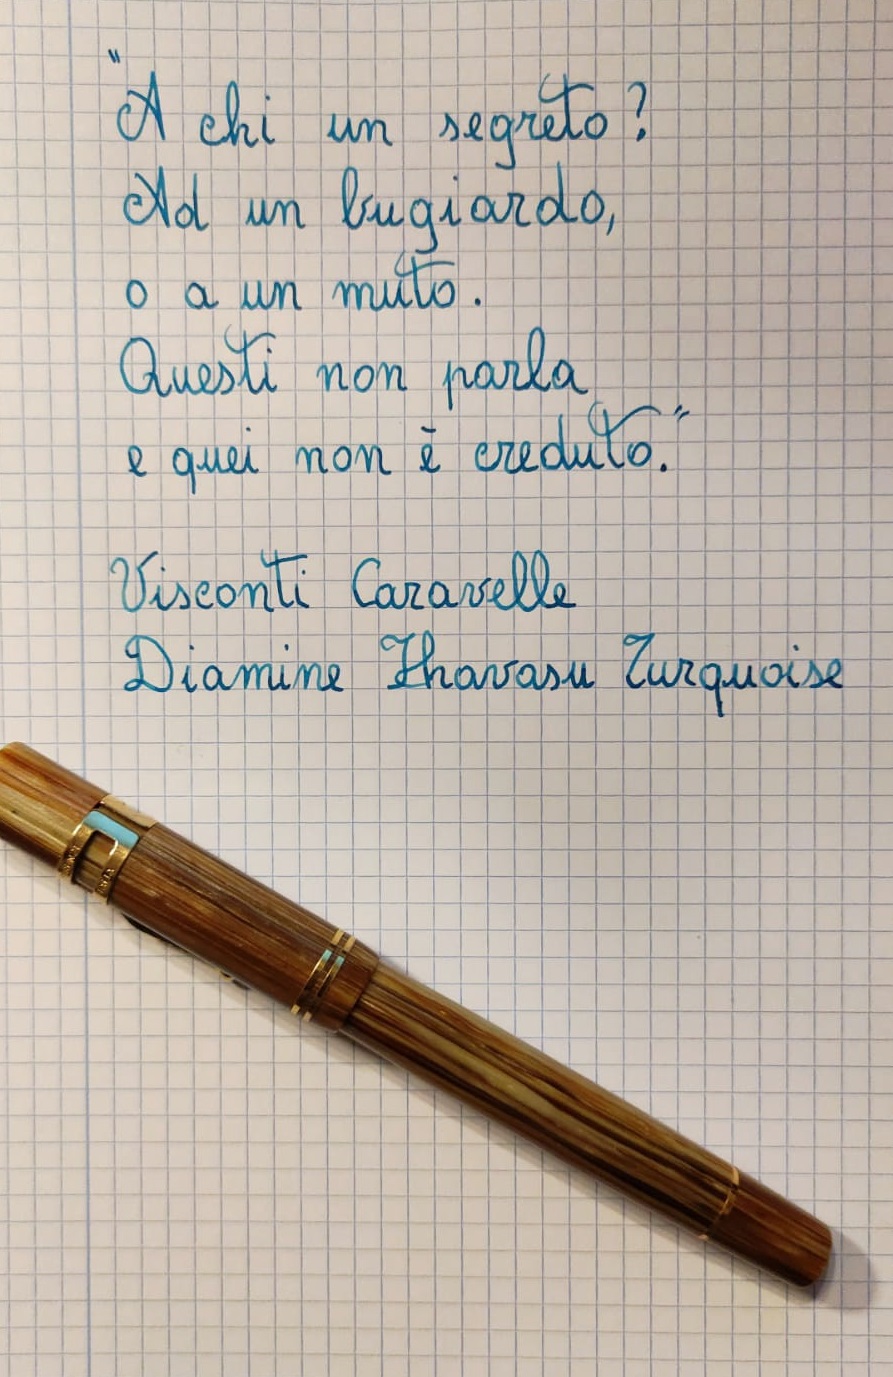 "A chi un segreto?
Ad un bugiardo,
o a un muto.
Questi non parla
e quei non è creduto."
Visconti Caravelle
Diamine Hhavasu Turquoise